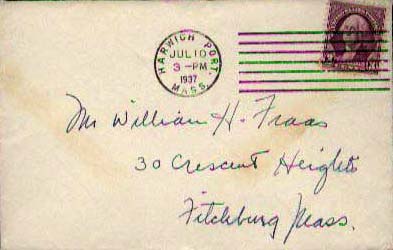 HARWICH PORT.
JUL 10
3-PM
1937
MASS.
Mr William H. Fraas
30 Crescent Heights
Fitchburg Mass.